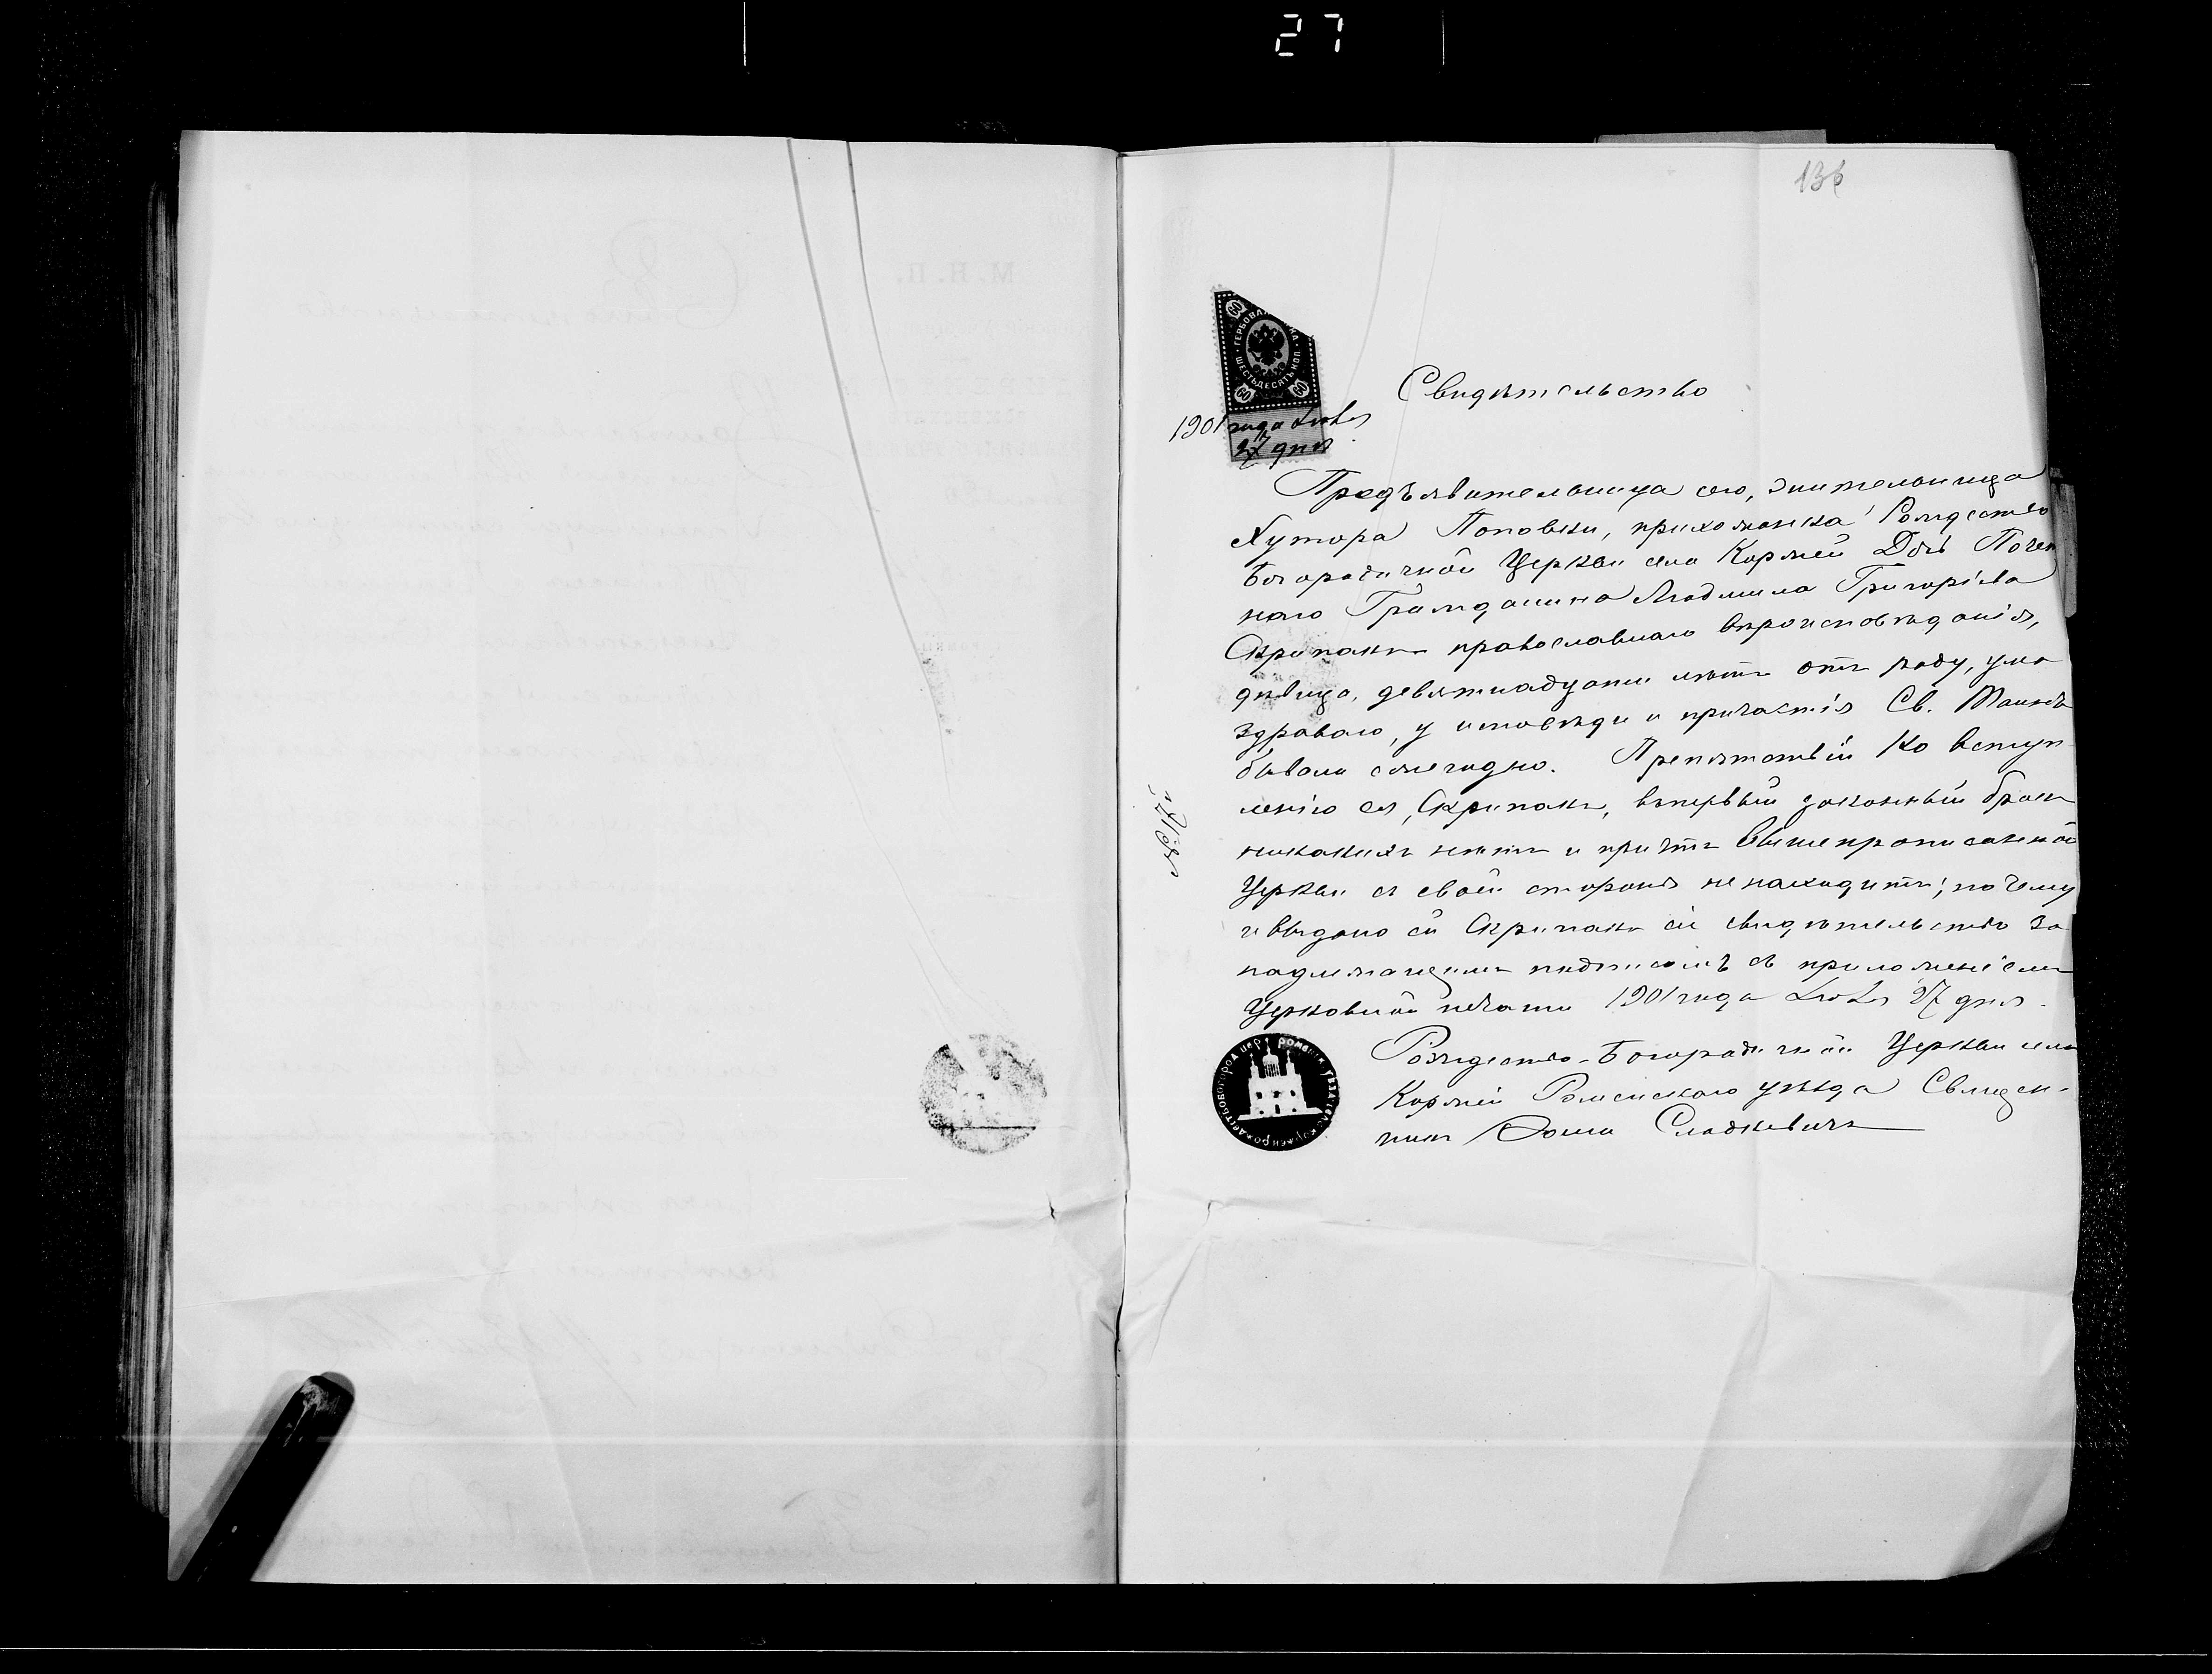 27
136
ГЕРБОВАЯ МАРКА
ШЕСТЬДЕСЯТЪ КОП.
60
60 60
1901 года Іюля
27 дня
Свидѣтельство
Предъявительница сего, жительница
Хутора Поповки, прихожанка Рождество
Богородичной Церкви села Коржей Дочь Почет
наго Гражданина Людмила Григоріева
Скрипакъ православнаго вѣроисповѣданія,
дѣвица, девятнадцати лѣтъ отъ роду, ума
здраваго, у исповѣди и причастія Св. Таинъ
бывала ежегодно. Препятствій ко вступ
ленію ея, Скрипакъ, въ первый законный бракъ
никакихъ нѣтъ и причтъ вышепрописанной
Церкви съ своей стороны не находитъ; почему
и выдано ей Скрипакъ сіе свидѣтельство за
надлежащимъ подписомъ съ приложеніемъ
Церковной печати 1901 года Іюля 27 дня.
Рождество-Богородичной Церкви села
Коржей Роменскаго уѣзда Священ-
никъ Ѳома Сладкевичъ